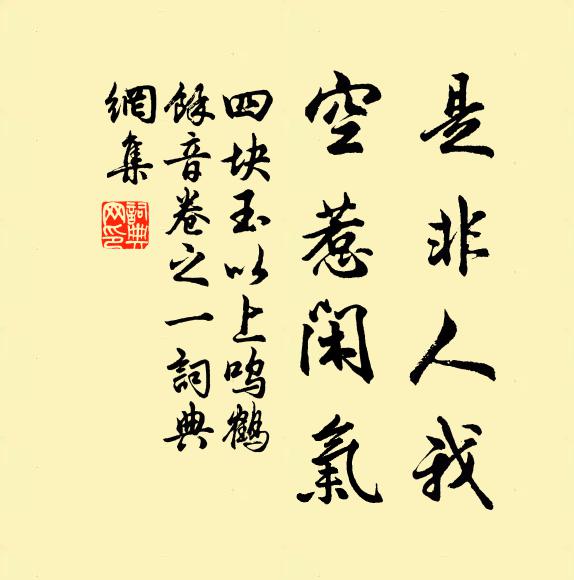 是非人我
空惹閑氣
四块玉以上鸣鹤
餘音卷之一詞典
網集
詞典
网印